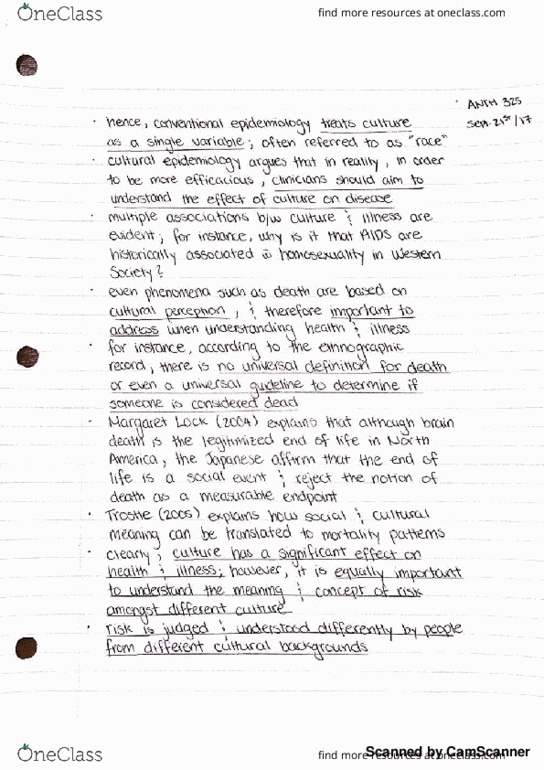 OneClass
find more resources at oneclass.com
· ANTH 325
Sept. 21st/17
· hence, conventional epidemiology treats culture
as a single variable; often referred to as "race"
· cultural epidemiology argues that in reality, in order
to be more efficacious, clinicians should aim to
understand the effect of culture on disease
· multiple associations b/w culture & illness are
evident; for instance, why is it that AIDS are
historically associated w homosexuality in Western
Society?
· even phenomena such as death are based on
cultural perception, & therefore important to
address when understanding health & illness
· for instance, according to the ethnographic
record, there is no universal definition for death
or even a universal guideline to determine if
someone is considered dead
· Margaret Lock (2004) explains that although brain
death is the legitimized end of life in North
America, the Japanese affirm that the end of
life is a social event & reject the notion of
death as a measurable endpoint
· Trostle (2005) explains how social & cultural
meaning can be translated to mortality patterns
· clearly, culture has a significant effect on
health & illness; however, it is equally important
to understand the meaning & concept of risk
amongst different culture
· risk is judged & understood differently by people
from different cultural backgrounds
OneClass
find more resources at oneclass.com
Scanned by CamScanner